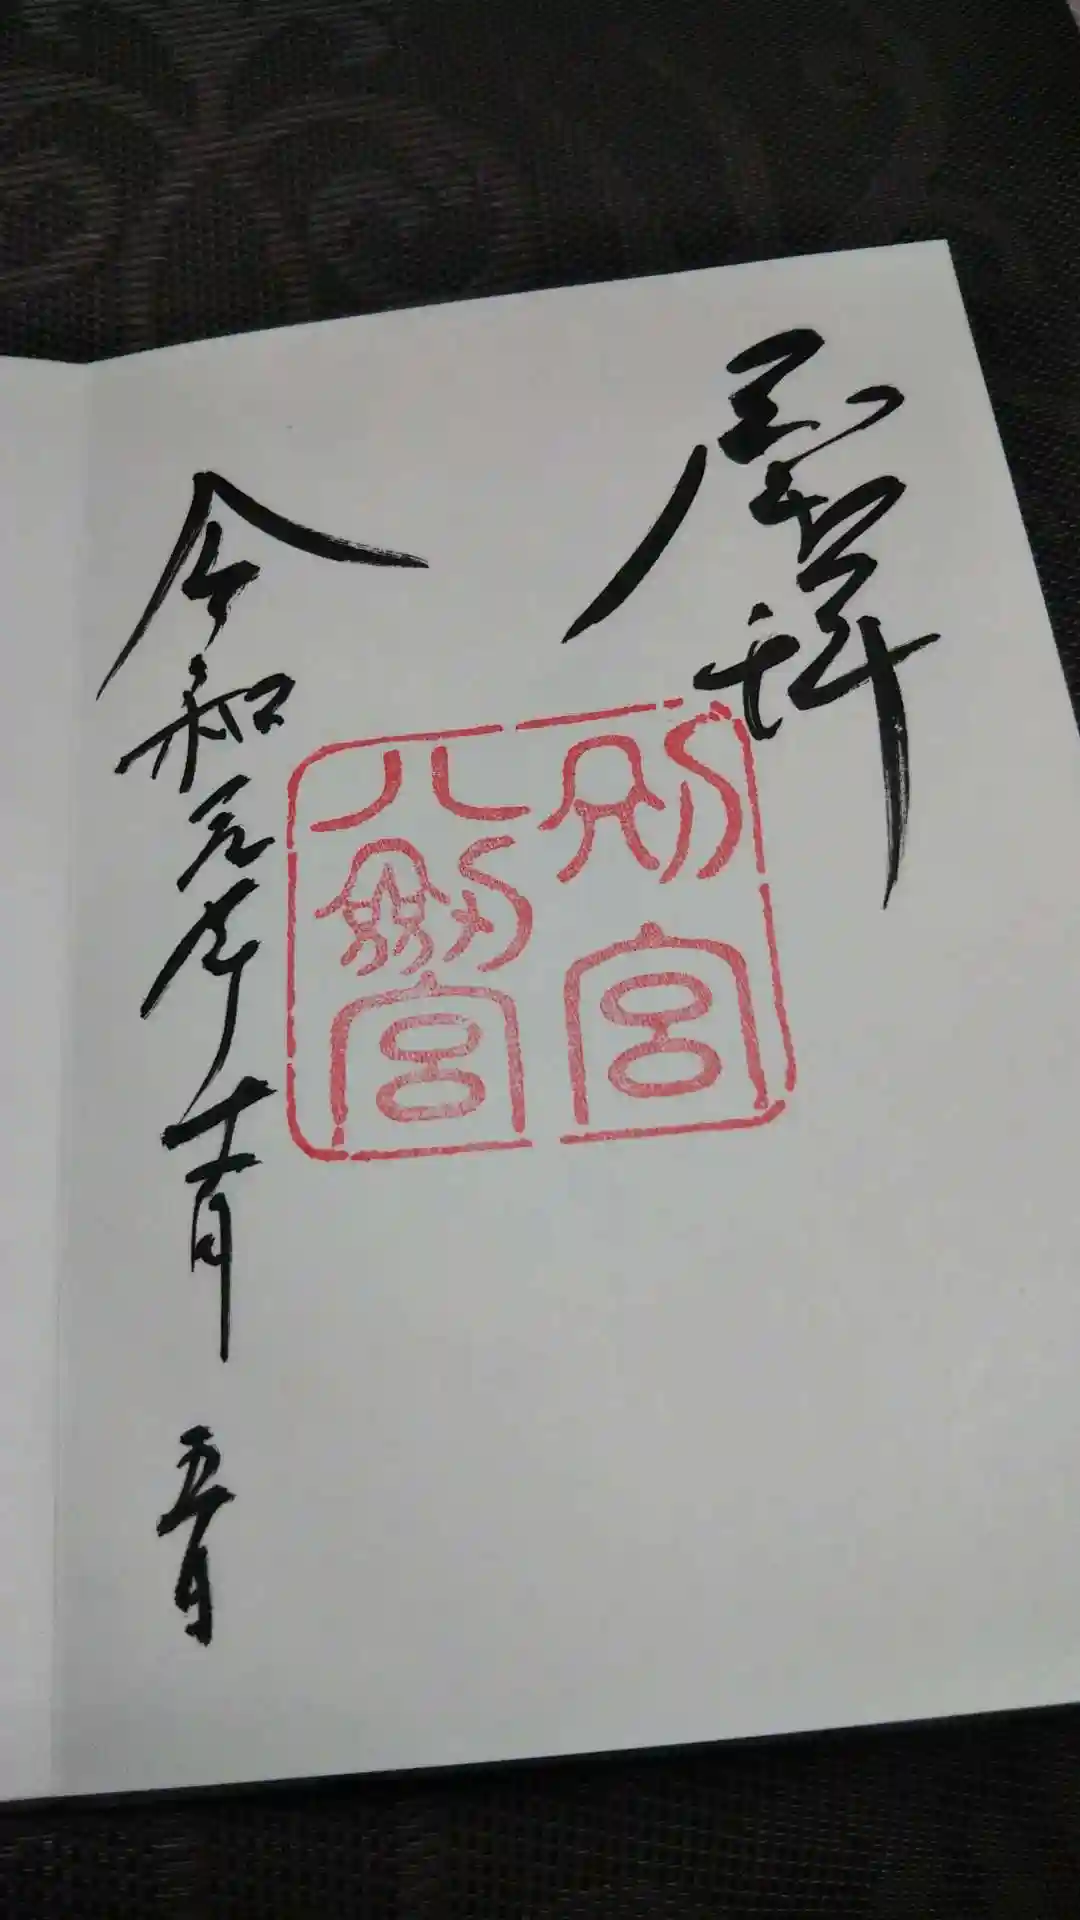 別宮
八劔宮
令和元年十一月 五日